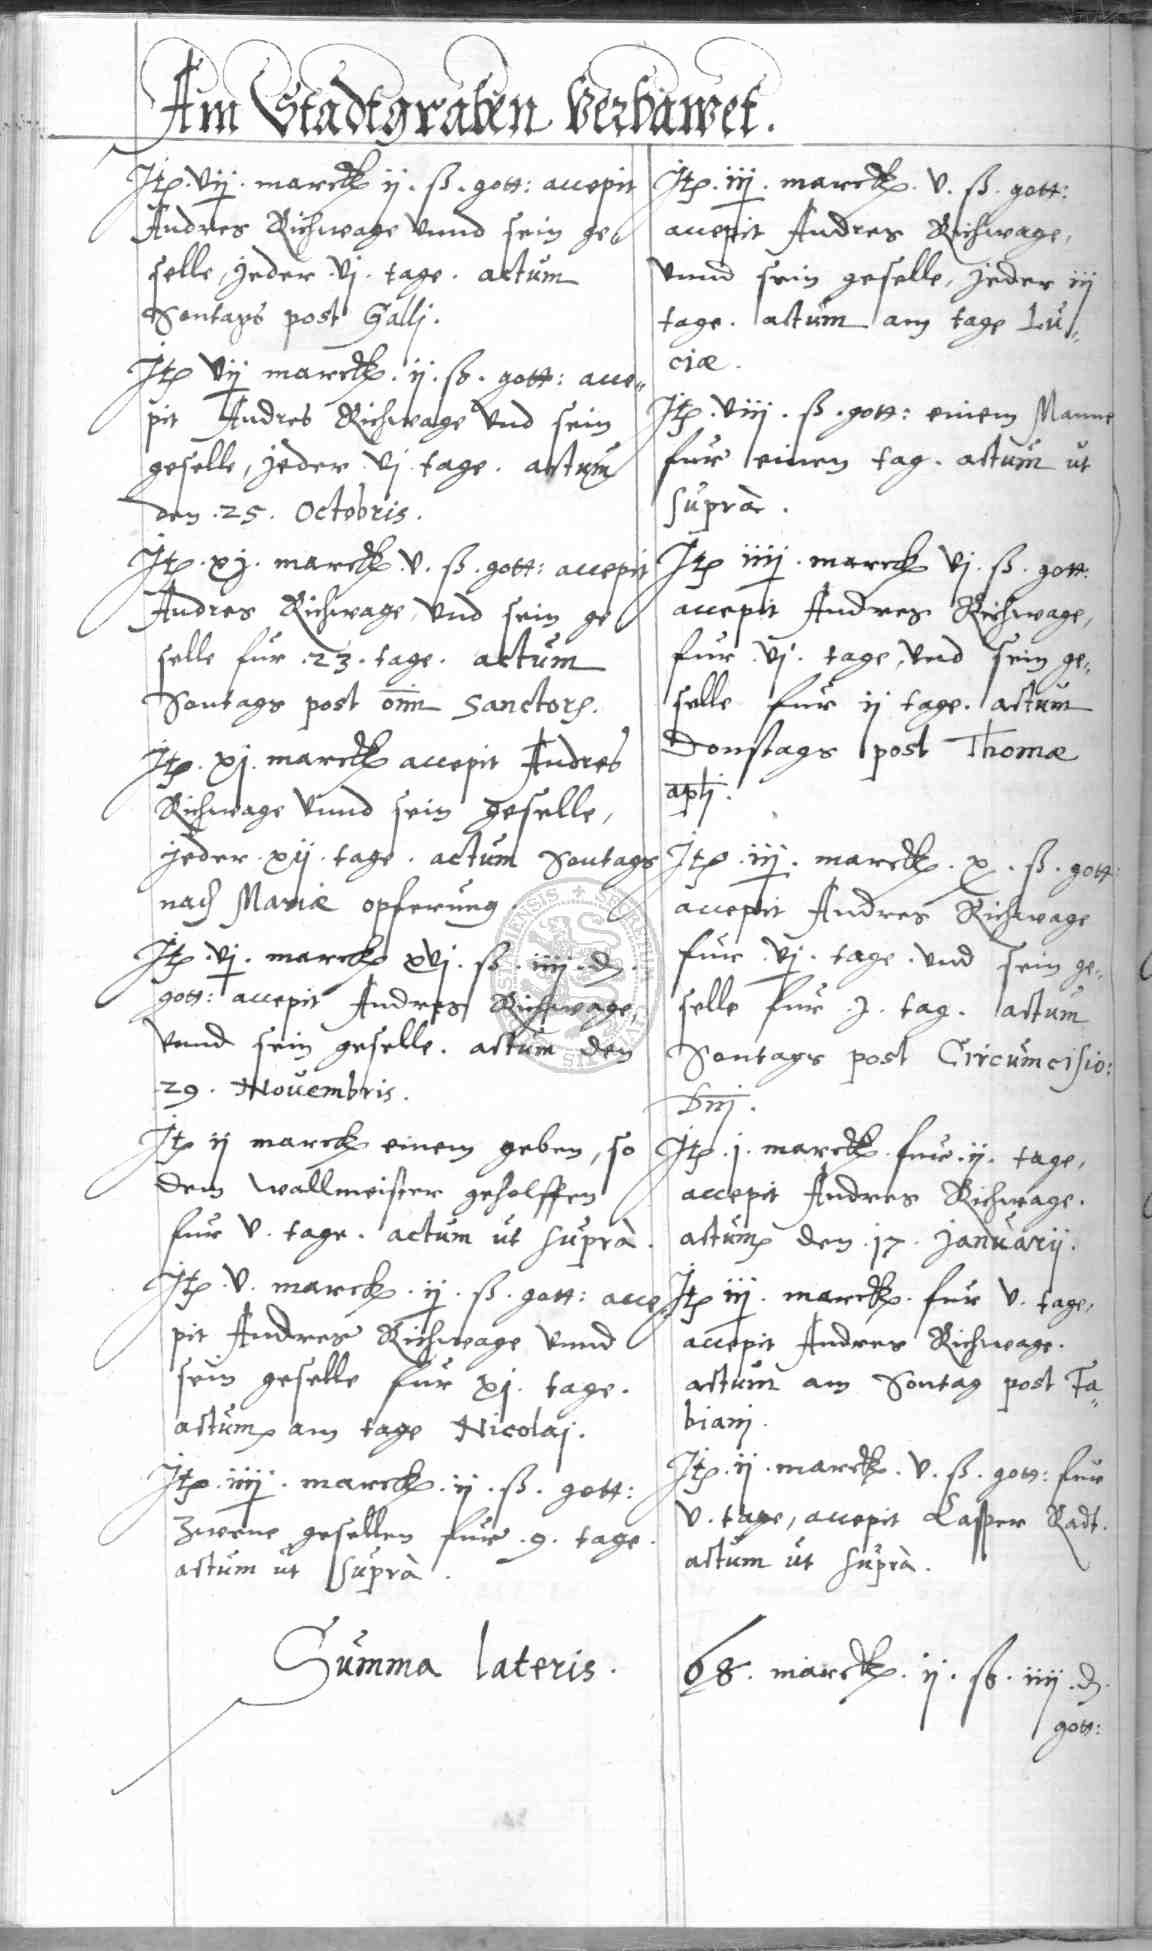 Am Stadtgraben Verbawet.
Itē. vij. marck ij. ß. gott: accepit
Andres Richwage vnnd sein ge
selle, jeder .vj. tage. actum
Sontags post Gallj.
Itē vij marck. ij. ß. gott: acce„
pit Andres Richwage vnd sein
geselle, jeder vj tage. actum
den .25. Octobris.
Itē. xj. marck. v. ß. gott: accepit
Andres Richwage, vnd sein ge
selle für .23. tage. actum
Sontags post om̄ Sanctorꝭ.
Itē. xj. marck accepit Andres
Richwage vnnd sein geselle,
jeder .xij. tage. actum Sontags
nach Mariæ opferung.
Itē. vj. marck xvj. ß. iiij. ₰.
gott: accepit Andres Richwage,
vnnd sein geselle. actum den
29. Nouembris.
Itē ij marck einem geben, so
dem wallmeister geholffen
fur v. tage. actum ut suprà.
Itē. v. marck. ij. ß. gott: acce„
pit Andres Richwage vnnd
sein geselle für xj. tage.
actum am tage Nicolaj.
Itē. iiij. marck. ij. ß. gott:
Zweene gesellen für .9. tage.
actum ut suprà.
Itē. iij. marck. v. ß. gott:
accepit Andres Richwage,
vnnd sein geselle, jeder iij
tage. actum am tage Lu„
ciæ.
Itē. viij. ß. gott: einem Manne
für einen tag. actum ut
suprà.
Itē iiij. marck vj. ß. gott:
accepit Andres Richwage,
fur .vj. tage, vnd sein ge„
selle fur ij tage. actum
Donstags post Thomæ
apłi.
Itē. iij. marck. x. ß. gott:
accepit Andres Richwage
fur .vj. tage. vnd sein ge„
selle fur .j. tag. actum
Sontags post Circumcisio:
Dnj.
Itē. j. marck. fur .ij. tage,
accepit Andres Richwage.
actum den .17. Januarij.
Itē iij. marck. für v. tage,
accepit Andres Richwage.
actum am Sontag post Fa„
bianj.
Itē. ij. marck. v. ß. gott: für
v. tage, accepit Casper Radt.
actum ut suprà.
Summa lateris. 68. marck. ij. ß. iiij. ₰.
gott: